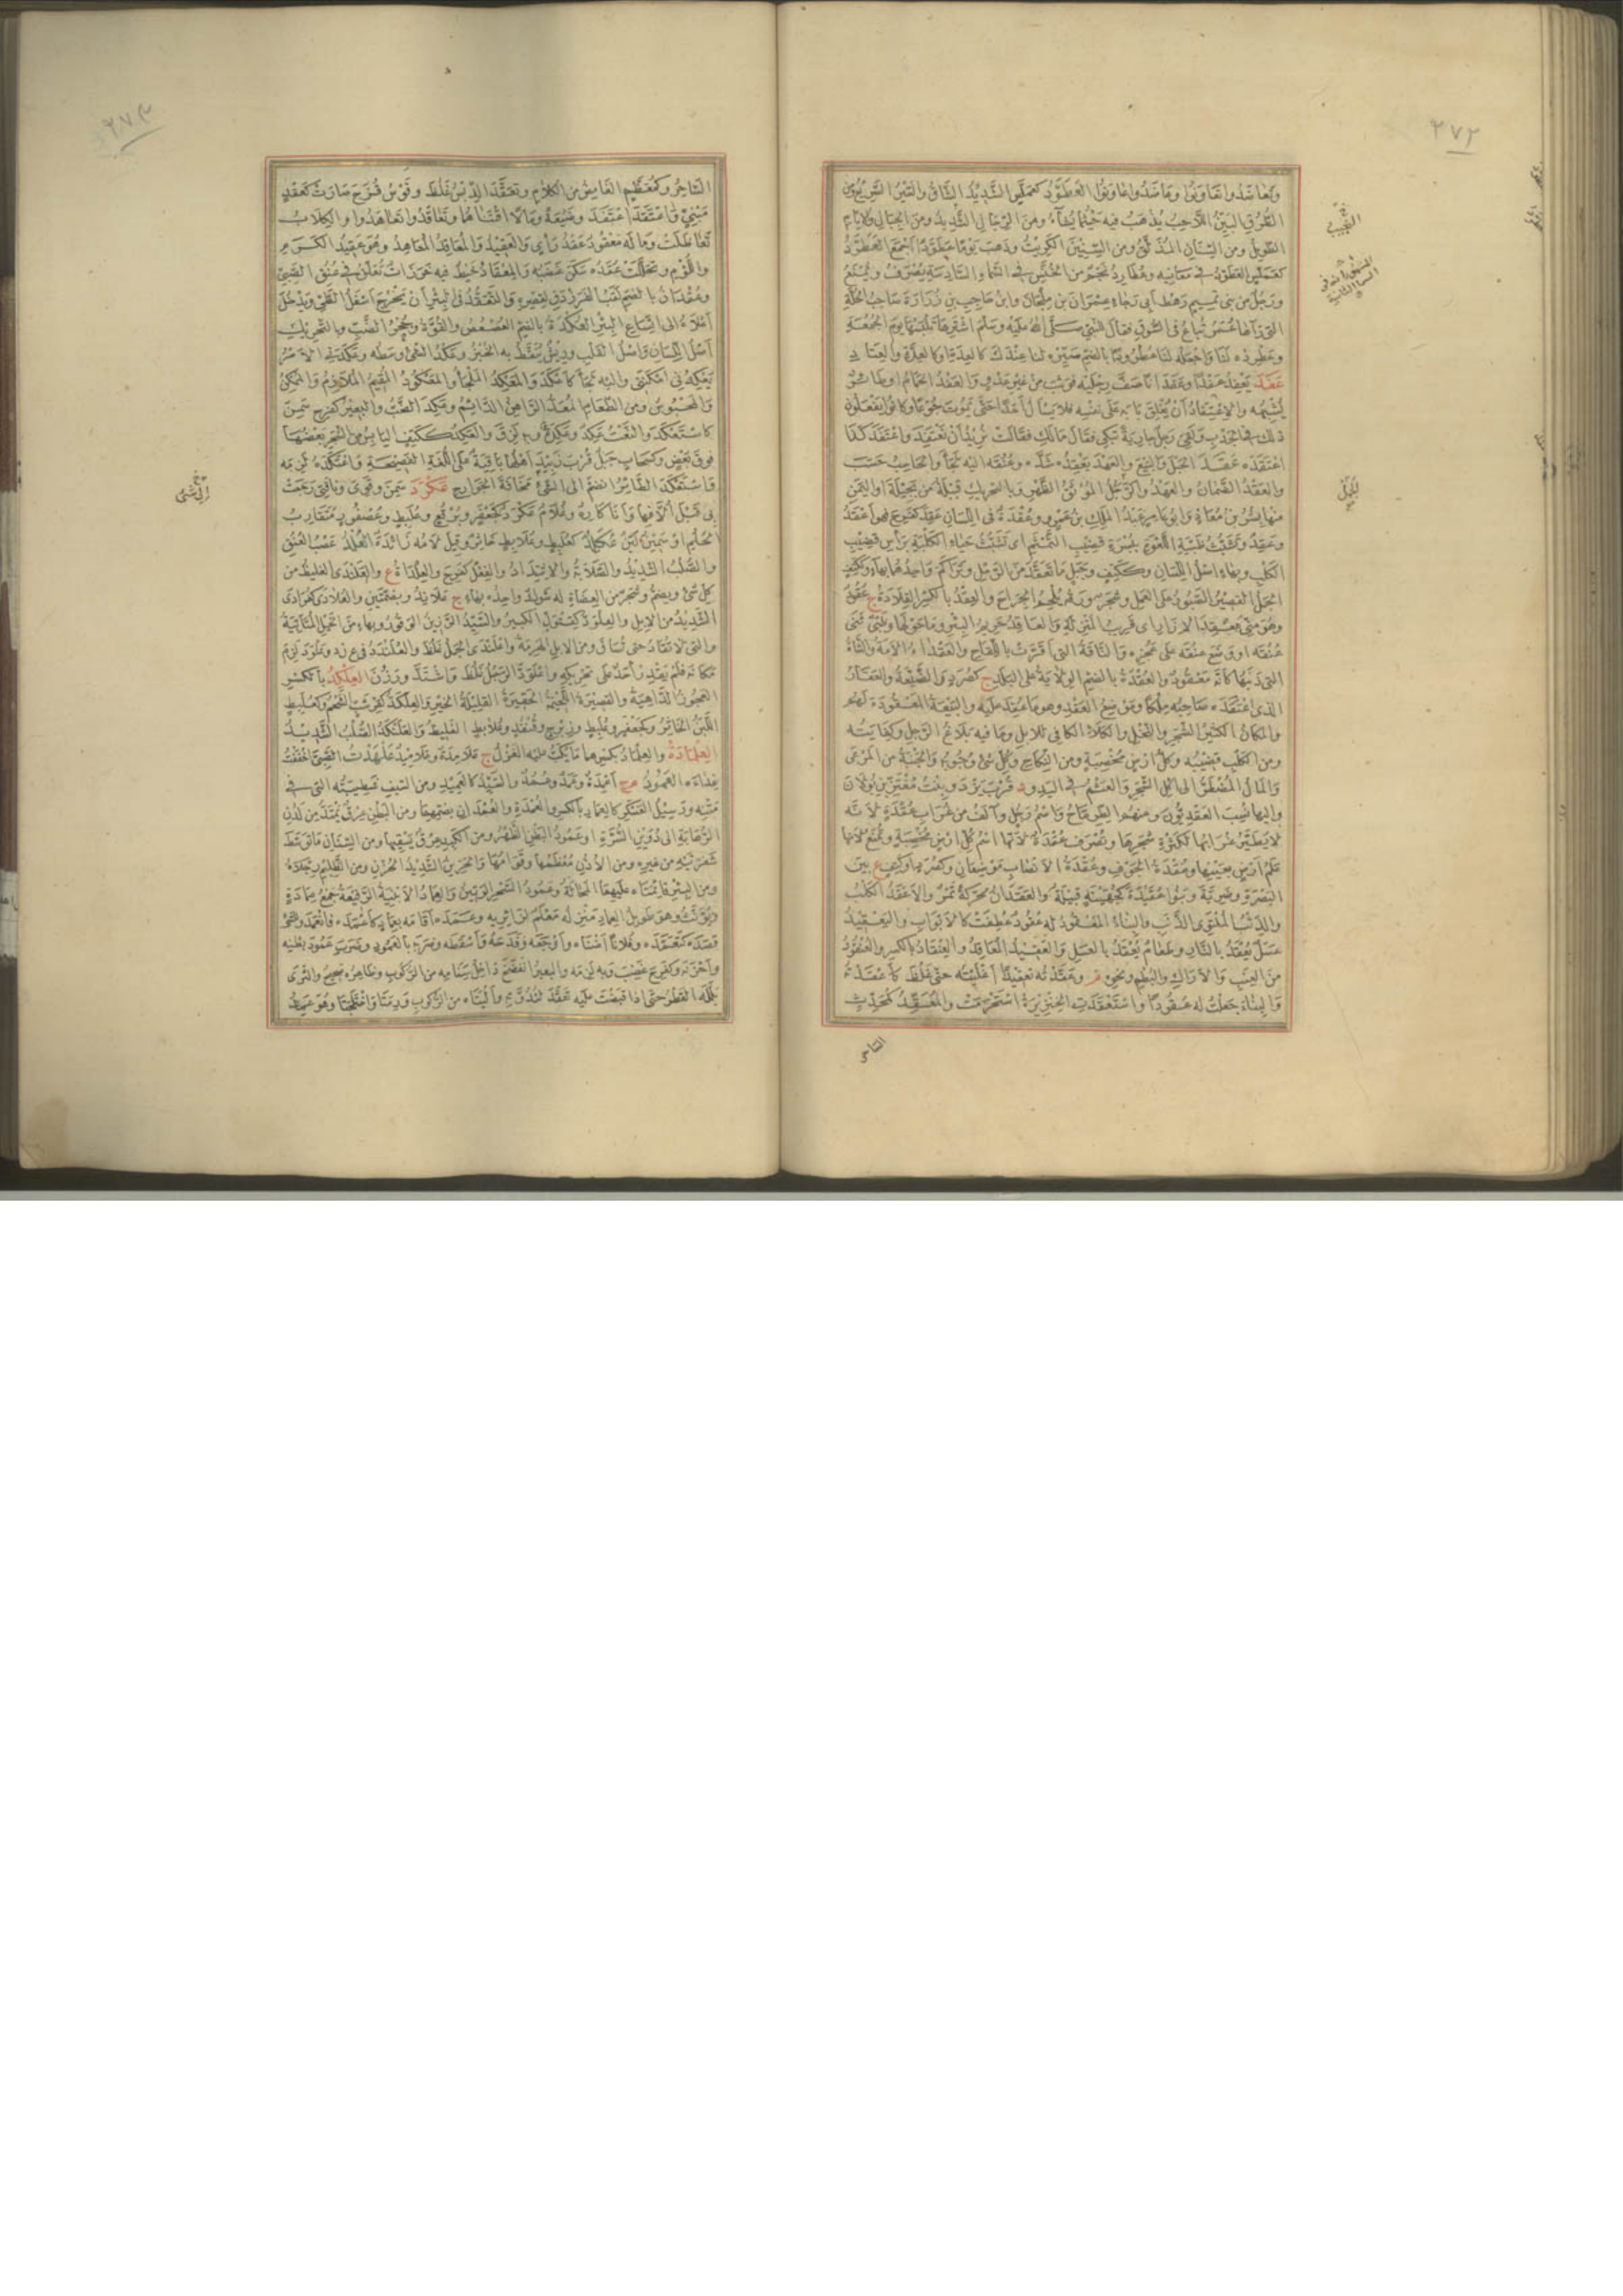 ٢٧٢
وتعاضدوا تعاونوا وعاضدوا عاونوا العطود كعملس الشديد الشاق والسير السريع ومن
الطرق البين اللاحب يذهب فيه حيثما يشاء ومن الرجال الشديد ومن الجبال والايام
الطويل ومن السنان المذلق ومن السنين الكريت وذهب يوما عطودا اجمع العطرد
كعملس العطود في معانيه وعطارد نجم من الخنس في السماء السادسة يصرف ويمنع
ورجل من بني تميم رهط ابي رجاء عمران بن ملحان وابن حاجب بن زرارة صاحب الحلة
التي رآها عمر تباع في السوق فقال للنبي صلى الله عليه وسلم اشترها تلبسها يوم الجمعة
وعطرده لنا واجعله لنا عطرودا بالضم صيره لنا عندك كالعدة وكالعدة والعتاد
عقد
يشبهه والاعتفاد أن يغلق بابه على نفسه فلا يسأل أحدا حتى يموت جوعا وكانوا يفعلون
ذلك في الجدب ولقي رجل جارية تبكي فقال مالك فقالت نريد أن نعتفد واعتفد كذا
اعتقده عقد الحبل والبيع والعهد يعقده شده وعنقه اليه لجأ والحاسب حسب
والعقد الضمان والعهد والجمل الموثق الظهر وبالتحريك قبيلة من بجيلة او اليمن
منها بشر بن معاذ وابو عامر عبد الملك بن عمرو وعقدة في اللسان عقد كفرح فهو اعقد
وعقد وتشبث ظبية اللعوة ببسرة قضيب التمثم اي تشبث حياء الكلبة برأس قضيب
الكلب وبهاء اصل اللسان وككتف وجبل ما تعقد من الرمل وتراكم واحدهما بهاء وككتف
الجمل القصير الصبور على العمل وشجر ورقه يلحم الجراح والعقد بالكسر القلادة ج عقود
وهو مني معقد الازار اي قريب المنزلة والعاقد حريم البئر وما حولها وظبي ثنى
عنقه او وضع عنقه على عجزه والناقة التي اقرت باللقاح والعقداء الامة والشاة
التي ذنبها كأنه معقود والعقدة بالضم الولاية على البلد ج كصرد والضيعة والعقار
الذي اعتقده صاحبه ملكا وموضع العقد وهو ما عقد عليه والبيعة المعقودة لهم
والمكان الكثير الشجر والنخل والكلأ الكافي للابل وما فيه بلاغ الرجل وكفايته
ومن الكلب قضيبه وكل ارض مخصبة ومن النكاح وكل شئ وجوبه والجنبة من المرعى
والمال المضطر الى اكل الشجر والعثم في اليد ود قرب يزد وبنت معتر بن بولان
واليها نسب العقديون ومنهم الطرماح واسم رجل وآلف من غراب عقدة لانه
لا يطير غرابها لكثرة شجرها وتصرف عقدة لانها اسم كل ارض مخصبة وتمنع لانها
علم ارض بعينها وعقدة الجوف وعقدة الانصاب موضعان وكصرد او كتف ع بين
البصرة وضرية وبنو عقيدة كجهينة قبيلة والعقدان محركة تمر والاعقد الكلب
والذئب الملتوي الذنب والبناء المعقود له عقود عطفت كالابواب واليعقيد
عسل يعقد بالنار وطعام يعقد بالعسل والعقيد المعاقد والعنقاد بالكسر والعنقود
من العنب والاراك والبطم ونحوه م وعقدته تعقيدا اغليته حتى غلظ كأعقدته
والبناء جعلت له عقودا واستعقدت الخنزيرة استحرمت والمعقد كمحدث
الساحر
النجيب
لجمل
٢٧٣
الساحر وكمعظم الغامض من الكلام وتعقد الدبس غلظ وقوس قزح صارت كعقد
مبني واعتقد اعتفد وضيعة ومالا اقتناها وتعاقدوا تعاهدوا والكلاب
تعاظلت وماله معقود عقد رأي والعقيد والمعاقد المعاهد وهو عقيد الكرم
واللؤم وتحللت عقده سكن غضبه والمعقاد خيط فيه خرزات تعلق في عنق الصبي
وعقدان بالضم لقب الفرزدق لقصره والتعقد في البئر أن يخرج اسفل الطي ويدخل
اعلاه الى اتساع البئر العكدة بالضم العصعص والقوة وجحر الضب وبالتحريك
اصل اللسان واصل القلب وريش ينقط به الخبز وعكد الشئ وسطه وعكدني الامر
يعكدني امكنني واليه لجأ كأعكد والمعكد الملجأ والمعكود المقيم الملازم والممكن
والمحبوس ومن الطعام المعد الراهن الدائم وعكد الضب والبعير كفرح سمن
كاستعكد والنعت عكد وعكدة وبه لزق والعكد ككتف اليابس من الشجر بعضها
فوق بعض وكسحاب جبل قرب زبيد اهلها باقية على اللغة الفصيحة واعتكده لزمه
واستعكد الطائر انضم الى الشئ مخافة الجوارح عكرد سمن وقوي وناقتي رجعت
بي قبل ألافها وانا كاره وغلام عكرد كجعفر وبرقع وعلبط وعصفور متقارب
الحلم او سمين لبن عكلد كعلبط وعلابط خاثر وقيل لامه زائدة العلد عصب العنق
والصلب الشديد والصلابة والاشتداد والفعل كفرح والعلداة ع والعلندى الغليظ من
كل شئ ويضم وشجر من العضاه له شوك واحده بهاء ج علاند وبضمتين والعلادى كفرادى
الشديد من الابل والعلود كقثول الكبير والسيد الرزين الوقور وبهاء من الخيل المتأبية
والتي لا تقاد حتى تساق ومن الابل الهرمة واعلندى الجمل غلظ والمعلندد في ع ن د وعلود لزم
مكانه فلم يقدر أحد على تحريكه واعلود الرجل غلظ واشتد ورزن العلكد بالكسر
العجوز الداهية والقصيرة اللحيمة الحقيرة القليلة الخير والعلكدة كقرشب الضخم وكعلبط
اللبن الخاثر وكجعفر وعلبط وزبرج وقنفذ وعلابط الغليظ والعلنكد الصلب الشديد
العلمادة والعلماد بكسرهما ما يكب عليه الغزل ج علامدة وعلاميد علهدت الصبي احسنت
غذاءه العمود م ج أعمدة وعمد وعمد والسيد كالعميد ومن السيف شطيبته التي في
متنه ورسيل العسكر كالعماد بالكسر والعمدة والعمدان بضمهما ومن البطن عرق يمتد من لدن
الرهابة الى دوين السرة او عمود البطن الظهر ومن الكبد عرق يسقيها ومن السنان ما توسط
شفرتيه من عيره ومن الأذن معظمها وقوامها والحزين الشديد الحزن ومن الظليم رجلاه
ومن البئر قائمتاه عليهما المحالة وعمود السحر الوتين والعماد الابنية الرفيعة جمع عمادة
ويؤنث وهو طويل العماد منزله معلم لزائريه وعمده اقامه بعماد كأعمده فانعمد والشئ
قصده كتعمده وفلانا اضناه واوجعه وفدحه وأسقطه وضربه بالعمود وضرب عمود بطنه
وأحزنه وكفرح غضب وبه لزمه والبعير انفضخ داخل سنامه من الركوب وظاهره صحيح والثرى
بلله المطر حتى اذا قبضت عليه تعقد لندوته وأليتاه من الركوب ورمتا واختلجتا وهو عمد